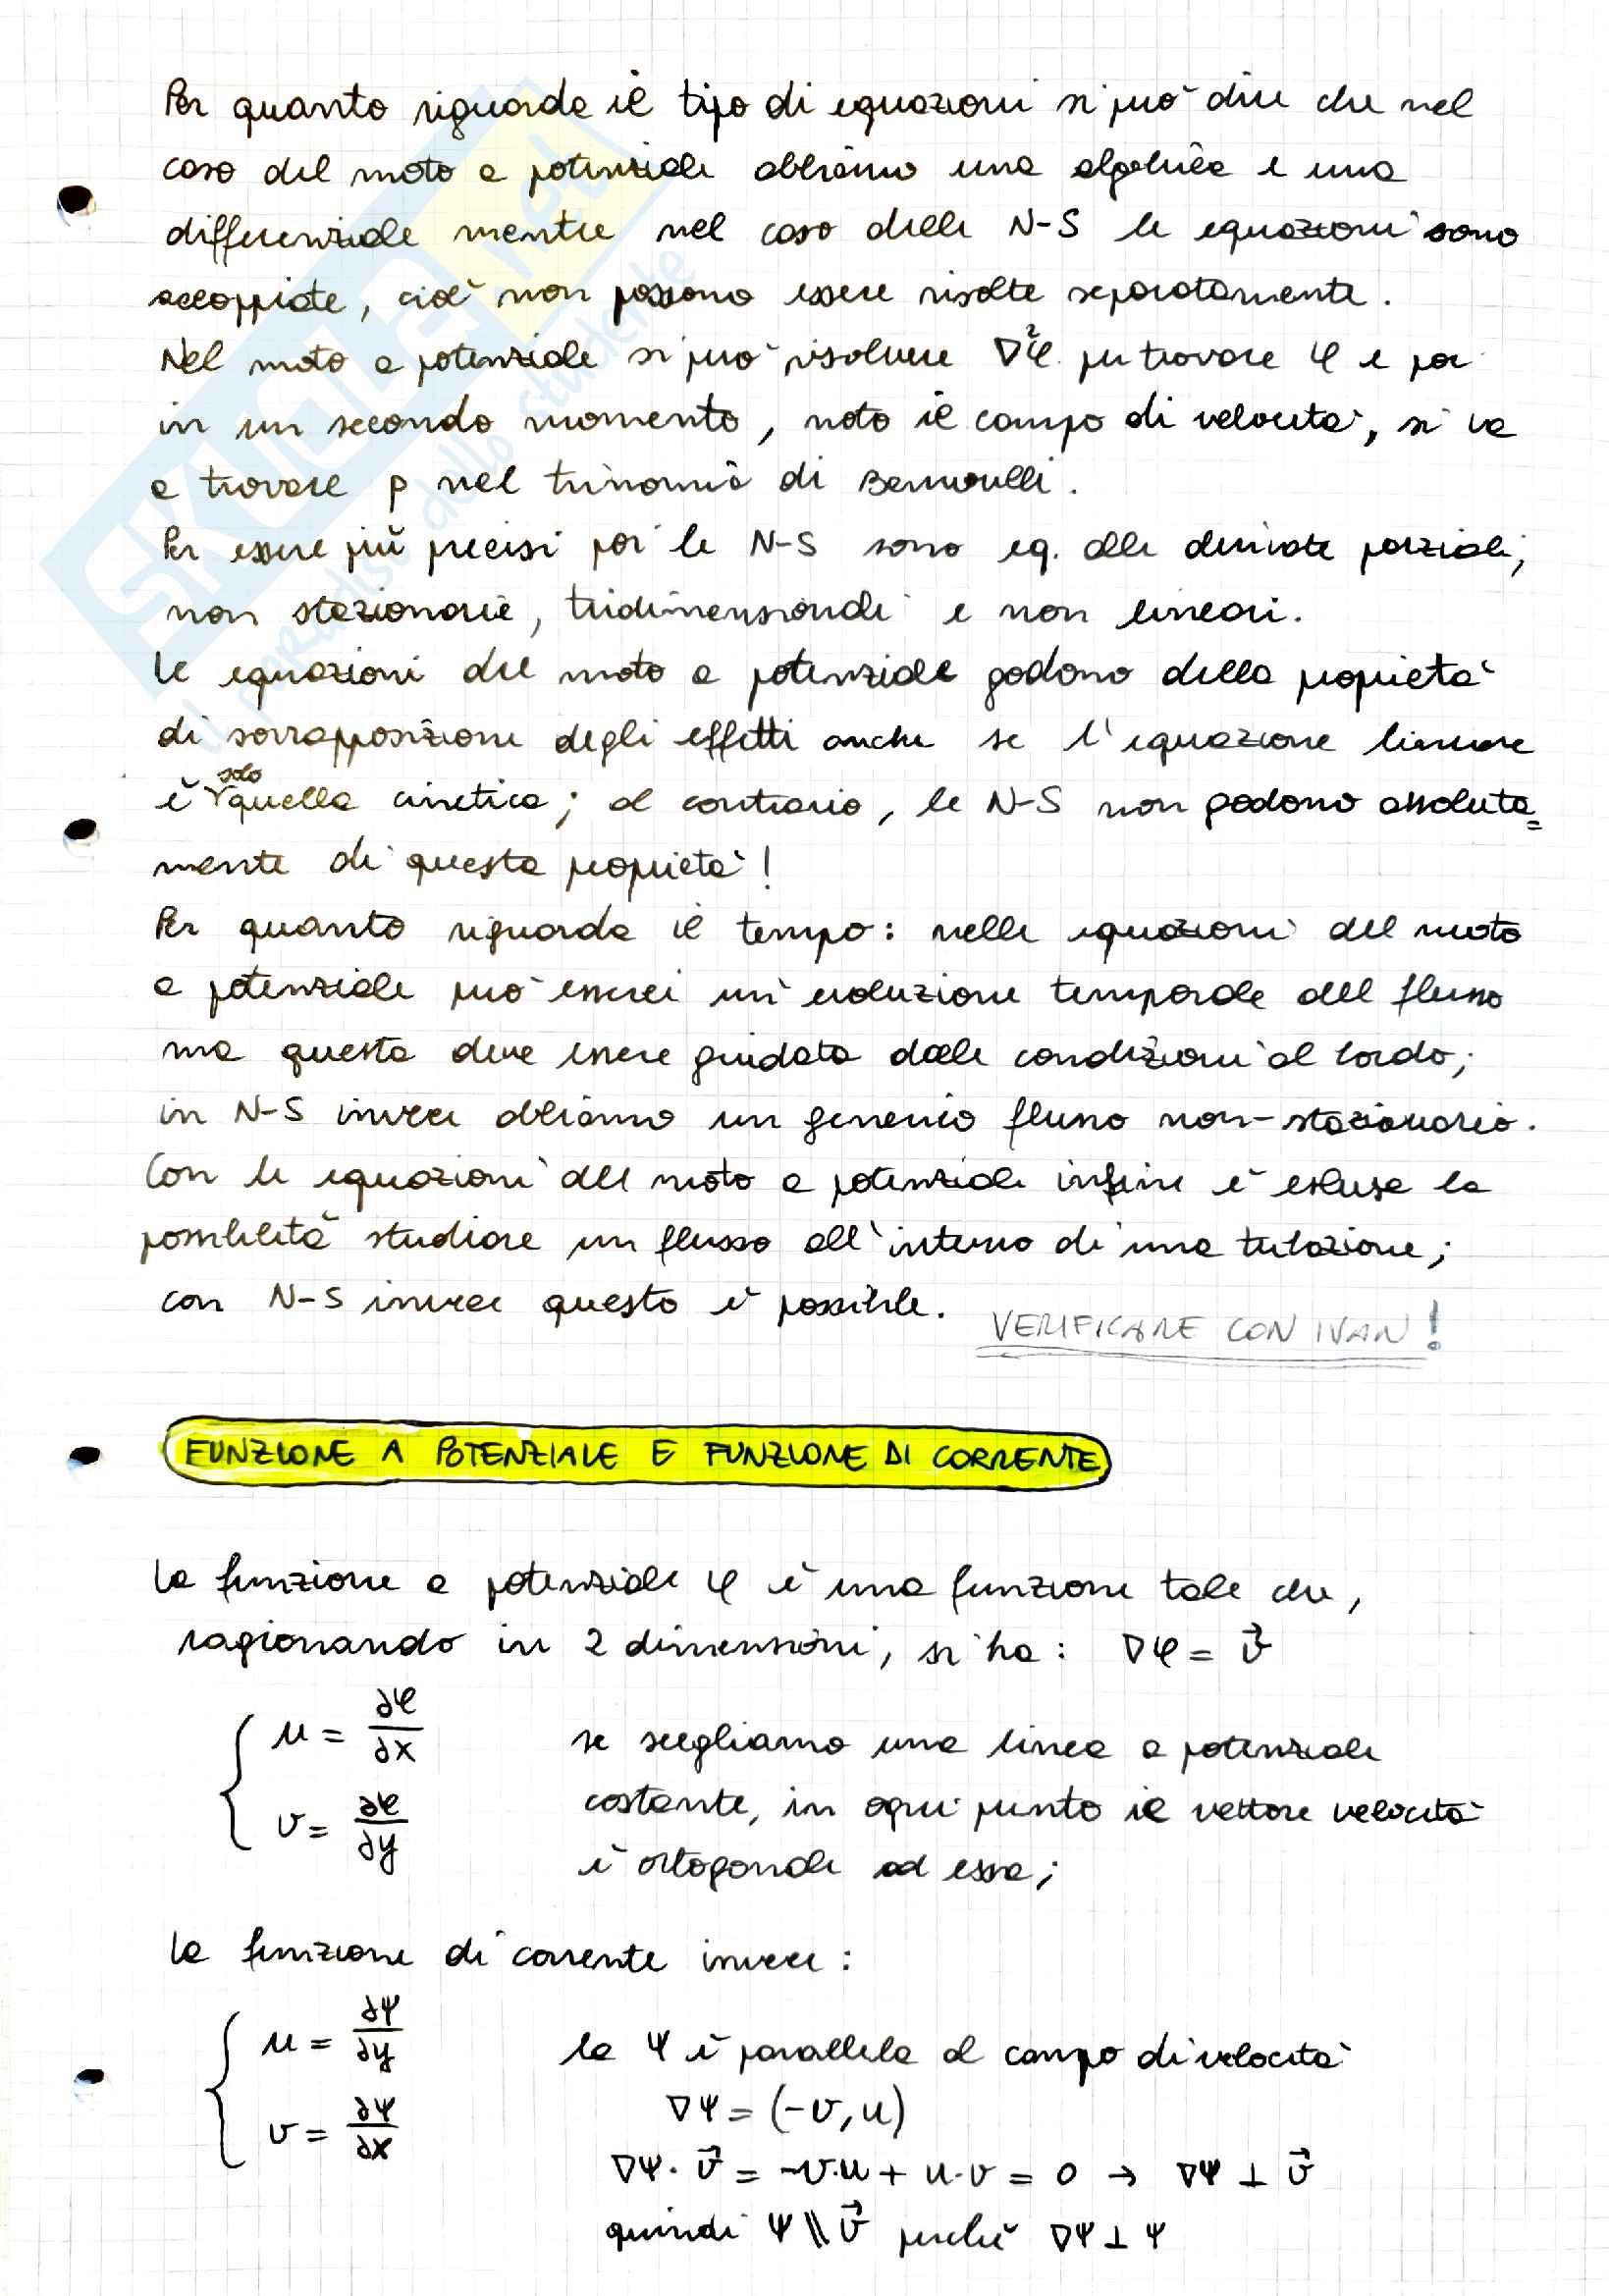 Per quanto riguarda il tipo di equazioni si può dire che nel
caso del moto a potenziale abbiamo una algebrica e una
differenziale mentre nel caso delle N-S le equazioni sono
accoppiate, cioè non possono essere risolte separatamente.
Nel moto a potenziale si può risolvere ∇²φ per trovare φ e poi
in un secondo momento, noto il campo di velocità, si va
a trovare p nel trinomio di Bernoulli.
Per essere più precisi poi le N-S sono eq. alle derivate parziali,
non stazionarie, tridimensionali e non lineari.
Le equazioni del moto a potenziale godono della proprietà
di sovrapposizione degli effetti anche se l'equazione lineare
è solo quella cinetica; al contrario, le N-S non godono assoluta=
mente di questa proprietà!
Per quanto riguarda il tempo: nelle equazioni del moto
a potenziale può esserci un'evoluzione temporale del flusso
ma questa deve essere guidata dalle condizioni al bordo;
in N-S invece abbiamo un generico flusso non-stazionario.
Con le equazioni del moto a potenziale infine è esclusa la
possibilità studiare un flusso all'interno di una tubazione;
con N-S invece questo è possibile.
VERIFICARE CON IVAN!
FUNZIONE A POTENZIALE E FUNZIONE DI CORRENTE
La funzione a potenziale φ è una funzione tale che,
ragionando in 2 dimensioni, si ha: ∇φ = v⃗
{ u = ∂φ/∂x
v = ∂φ/∂y
se scegliamo una linea a potenziale
costante, in ogni punto il vettore velocità
è ortogonale ad essa;
la funzione di corrente invece:
{ u = ∂ψ/∂y
v = ∂ψ/∂x
la ψ è parallela al campo di velocità
∇ψ = (-v, u)
∇ψ · v⃗ = -v·u + u·v = 0 → ∇ψ ⊥ v⃗
quindi ψ \\ v⃗ perché ∇ψ ⊥ ψ
SKUOLA.net
il paradiso dello studente